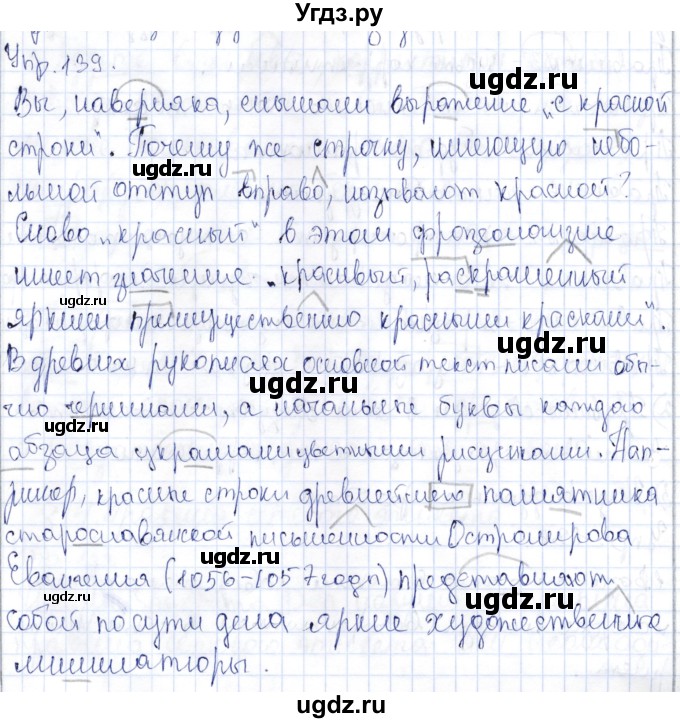 Угдз.ру
Упр. 139.
Вы, наверняка, слышали выражение „с красной
строки“. Почему же строчку, имеющую небо-
льшой отступ вправо, называют красной?
Слово „красный“ в этом фразеологизме
имеет значение „красивый, раскрашенный
яркими преимущественно красными красками“.
В древних рукописях основной текст писали обы-
чно чернилами, а начальные буквы каждого
абзаца украшали цветными рисунками. Нап-
ример, красные строки древнейшего памятника
старославянской письменности Остромирова
Евангелия (1056-1057 годы) представляют
собой по сути дела яркие художественные
миниатюры.
ugdz.ru
ugdz.ru
ugdz.ru
ugdz.ru
ugdz.ru
ugdz.ru
ugdz.ru
ugdz.ru
ugdz.ru
ugdz.ru
ugdz.ru
ugdz.ru
ugdz.ru